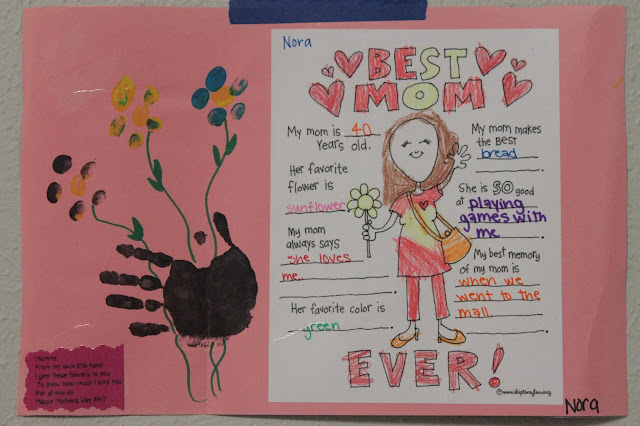 Nora
BEST
MOM
My mom is 40
Years old.
Her favorite
flower is
sunflower.
My mom
always says
she loves
me
Her favorite color is
green
My mom makes
the Best
bread
She is SO good
at playing
games with
me
My best memory
of my mom is
when we
went to the
mall
EVER!
Nora